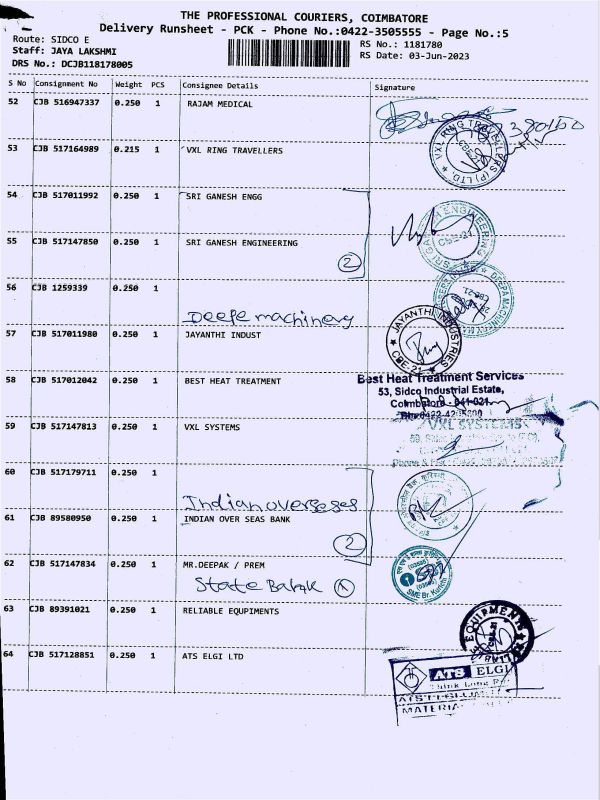 THE PROFESSIONAL COURIERS, COIMBATORE
Delivery Runsheet - PCK - Phone No.:0422-3505555 - Page No.:5
Route: SIDCO E
Staff: JAYA LAKSHMI
DRS No.: DCJB118178005
RS No.: 1181780
RS Date: 03-Jun-2023
S No Consignment No Weight PCS Consignee Details Signature
52 CJB 516947337 0.250 1 RAJAM MEDICAL
53 CJB 517164989 0.215 1 VXL RING TRAVELLERS
VXL RING TRAVELLERS (P) LTD.
54 CJB 517011992 0.250 1 SRI GANESH ENGG
55 CJB 517147850 0.250 1 SRI GANESH ENGINEERING
2
SRI GANESH ENGINEERING
CBE-21
56 CJB 1259339 0.250 1
Deepe machinery
DEEPA MACHINERY
CBE-21
57 CJB 517011980 0.250 1 JAYANTHI INDUST
JAYANTHI INDUSTRIES
CBE-21
58 CJB 517012042 0.250 1 BEST HEAT TREATMENT
Best Heat Treatment Services
53, Sidco Industrial Estate,
Coimbatore - 641 021
59 CJB 517147813 0.250 1 VXL SYSTEMS
VXL SYSTEMS
60 CJB 517179711 0.250 1
Indian overseses
61 CJB 89580950 0.250 1 INDIAN OVER SEAS BANK
2
62 CJB 517147834 0.250 1 MR.DEEPAK / PREM
State Bank
SME Br. Kurichi
63 CJB 89391021 0.250 1 RELIABLE EQUPIMENTS
EQUIPMENTS
64 CJB 517128851 0.250 1 ATS ELGI LTD
ATS ELGI